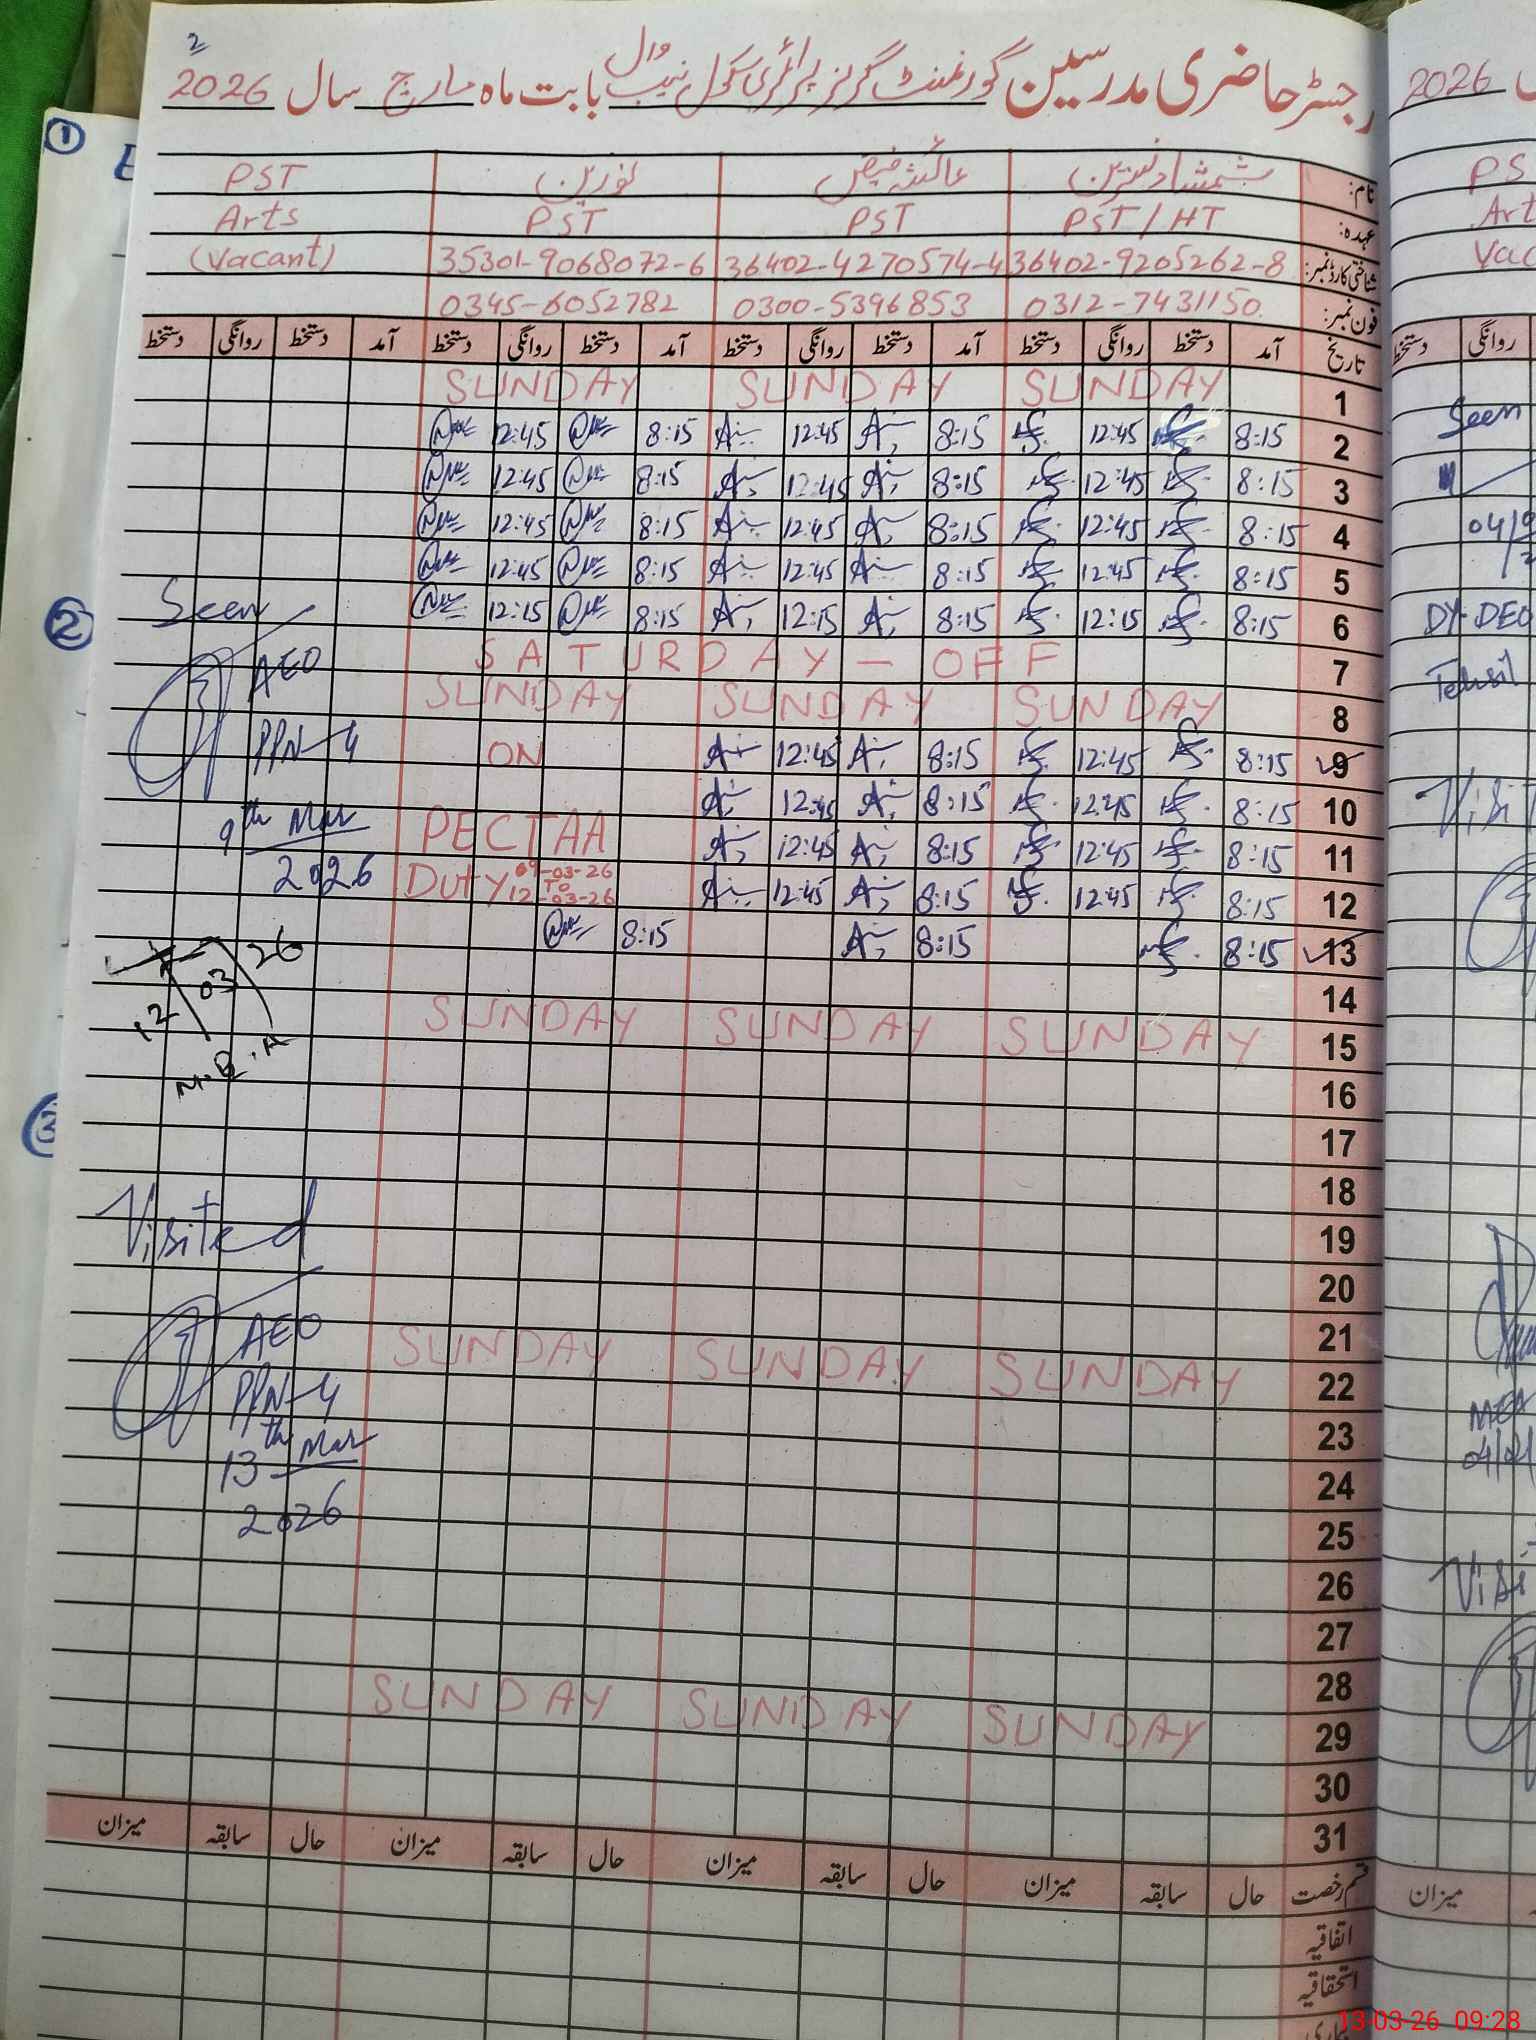 2
رجسٹر حاضری مدرسین گورنمنٹ گرلز پرائمری سکول نیب وال بابت ماہ مارچ سال 2026
نام: شمشاد نسرین عائشہ فیض نورین PST
عہدہ: PST / HT PST PST Arts
شناختی کارڈ نمبر: 36402-9205262-8 36402-4270574-4 35301-9068072-6 (Vacant)
فون نمبر: 0312-7431150 0300-5396853 0345-6052782
تاریخ آمد دستخط روانگی دستخط آمد دستخط روانگی دستخط آمد دستخط روانگی دستخط آمد دستخط روانگی دستخط
1 SUNDAY SUNDAY SUNDAY
2 8:15 12:45 8:15 12:45 8:15 12:45
3 8:15 12:45 8:15 12:45 8:15 12:45
4 8:15 12:45 8:15 12:45 8:15 12:45
5 8:15 12:45 8:15 12:45 8:15 12:45
6 8:15 12:15 8:15 12:15 8:15 12:15
7 SATURDAY - OFF
8 SUNDAY SUNDAY SUNDAY
9 8:15 12:45 8:15 12:45 ON
10 8:15 12:45 8:15 12:45
11 8:15 12:45 8:15 12:45 PECTAA
12 8:15 12:45 8:15 12:45 Duty 09-03-26 TO 12-03-26
13 8:15 8:15 8:15
14
15 SUNDAY SUNDAY SUNDAY
16
17
18
19
20
21
22 SUNDAY SUNDAY SUNDAY
23
24
25
26
27
28
29 SUNDAY SUNDAY SUNDAY
30
31
قسم رخصت حال سابقہ میزان حال سابقہ میزان حال سابقہ میزان حال سابقہ میزان
اتفاقیہ
استحقاقیہ
Seen
AEO
PPN-4
9th Mar
2026
12 03 26
M.E.A
Visited
AEO
PPN-4
13th Mar
2026
1
2
2026
دستخط روانگی
Seen
DY-DEO
Tehsil
میزان
13-03-26 09:28